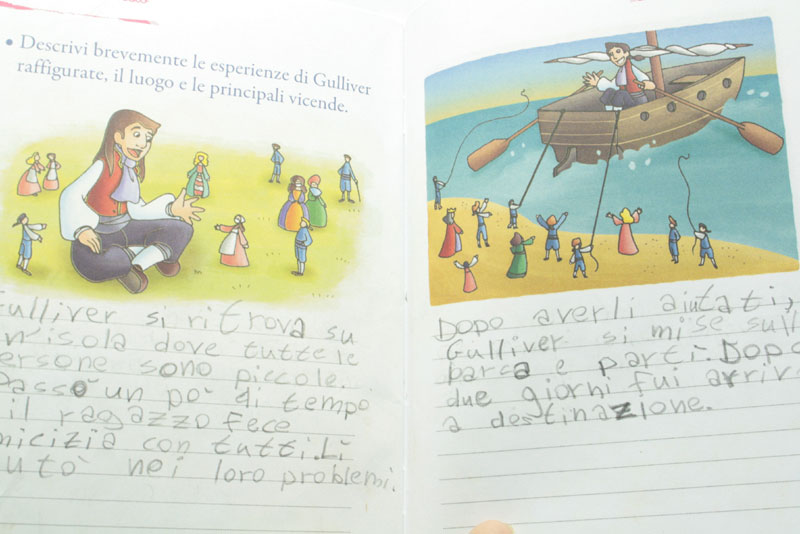 • Descrivi brevemente le esperienze di Gulliver
raffigurate, il luogo e le principali vicende.
ulliver si ritrova su
n'isola dove tutte le
ersone sono piccole.
Passò un po' di tempo
il ragazzo fece
micizia con tutti. Li
utò nei loro problemi.
Dopo averli aiutati,
Gulliver si mise sull
barca e partì. Dopo
due giorni fui arriv
a destinazione.